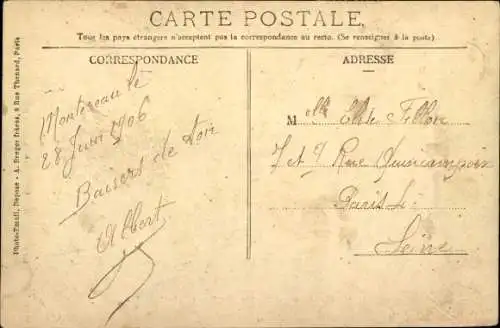 CARTE POSTALE
Tous les pays étrangers n'acceptent pas la correspondance au recto. (Se renseigner à la poste)
CORRESPONDANCE
Montereau le
28 Juin 1906
Baisers de ton
Albert
ADRESSE
Melle Fillon
7 et 9 Rue Quincampoix
Paris
Seine
Photo-Email, Dépose - A. Breger frères, 9 Rue Thénard, Paris